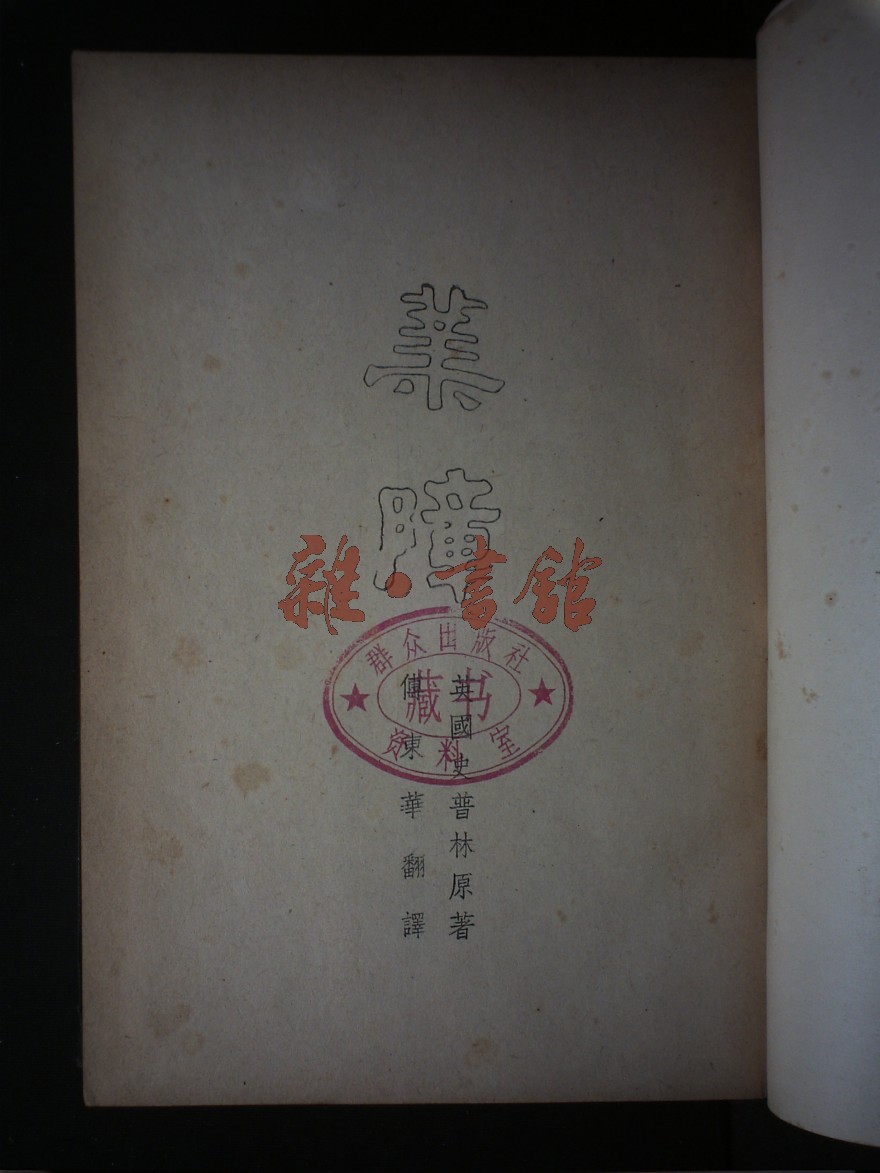 業障
雜·書館
群众出版社
藏书
资料室
英國史普林原著
傅東華翻譯